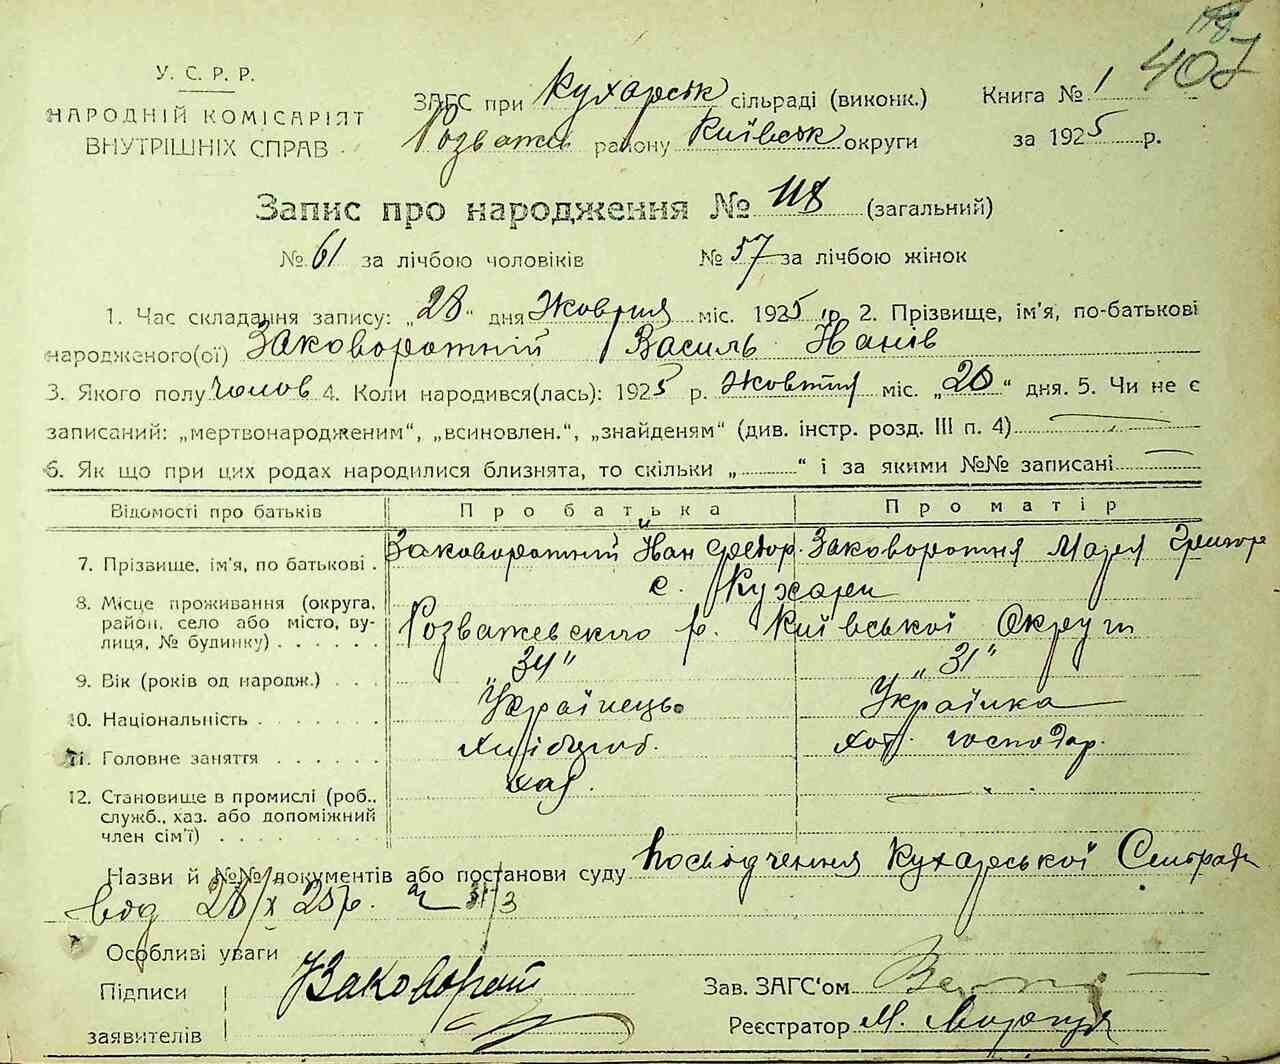 118
407
У. С. Р. Р.
НАРОДНІЙ КОМІСАРІЯТ
ВНУТРІШНІХ СПРАВ
ЗАГС при Кухарськ сільраді (виконк.)
Розважев району Київськ округи
Книга № 1
за 1925 р.
Запис про народження № 118 (загальний)
№ 61 за лічбою чоловіків № 57 за лічбою жінок
1. Час складання запису: „28“ дня Жовтня міс. 1925 р. 2. Прізвище, ім'я, по-батькові
народженого(ої) Заковоротній Василь Іванів
3. Якого полу Чолов 4. Коли народився(лась): 1925 р. Жовтня міс. „20“ дня. 5. Чи не є
записаний: „мертвонародженим“, „всиновлен.“, „знайденям“ (див. інстр. розд. III п. 4)
6. Як що при цих родах народилися близнята, то скільки „ “ і за якими №№ записані
Відомості про батьків Про батька Про матір
7. Прізвище, ім'я, по батькові . Заковоротний Йван Федор. Заковоротня Марія Григор
8. Місце проживання (округа, район, село або місто, вулиця, № будинку) с. Кухари
Розважевского р. Київської Округи
9. Вік (років од народж.) „34“ „31“
10. Національність Українець Українка
11. Головне заняття хлібороб. хат. господар.
12. Становище в промислі (роб., служб., хаз. або допоміжний член сім'ї) хаз.
Назви й №№ документів або постанови суду Посвідчення Кухарської Сельради
від 28/X 25 р. № 31/3
Особливі уваги
Підписи
заявителів
Заковорот
Зав. ЗАГС'ом
Реєстратор М.